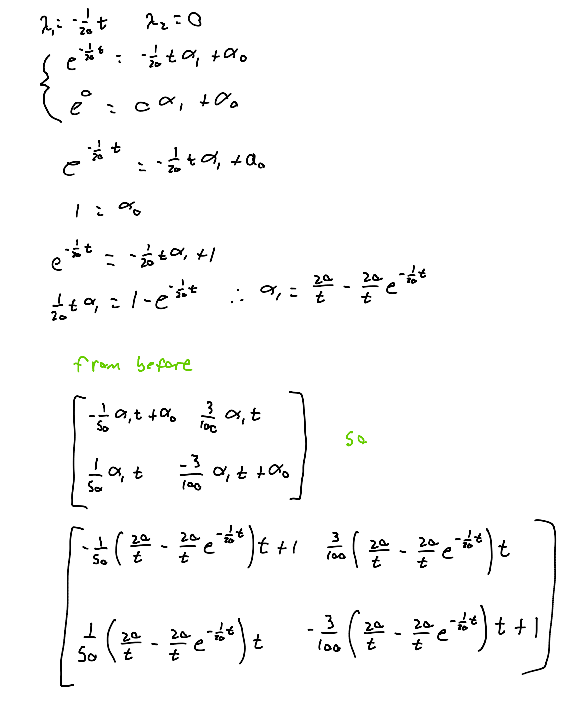 λ₁ = -1/20 t    λ₂ = 0
{ e^(-1/20 t) = -1/20 t α₁ + α₀
e^0 = 0 α₁ + α₀
e^(-1/20 t) = -1/20 t α₁ + α₀
1 = α₀
e^(-1/20 t) = -1/20 t α₁ + 1
1/20 t α₁ = 1 - e^(-1/20 t) ∴ α₁ = 20/t - 20/t e^(-1/20 t)
from before
[ -1/50 α₁ t + α₀    3/100 α₁ t
1/50 α₁ t    -3/100 α₁ t + α₀ ] so
[ -1/50 (20/t - 20/t e^(-1/20 t)) t + 1    3/100 (20/t - 20/t e^(-1/20 t)) t
1/50 (20/t - 20/t e^(-1/20 t)) t    -3/100 (20/t - 20/t e^(-1/20 t)) t + 1 ]